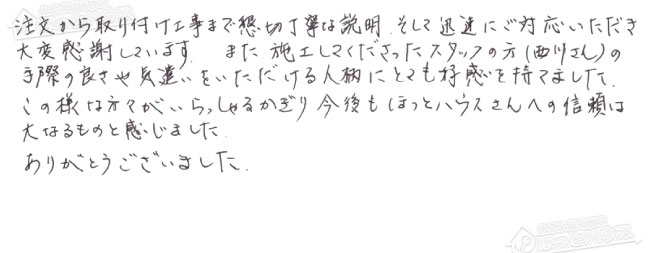 注文から取り付け工事まで懇切丁寧な説明、そして迅速にご対応いただき
大変感謝しています。 また施工してくださったスタッフの方(西川さん)の
手際の良さや気遣いをいただける人柄にとても好感を持てました。
この様な方々がいらっしゃるかぎり今後もほっとハウスさんへの信頼は
大なるものと感じました。
ありがとうございました。